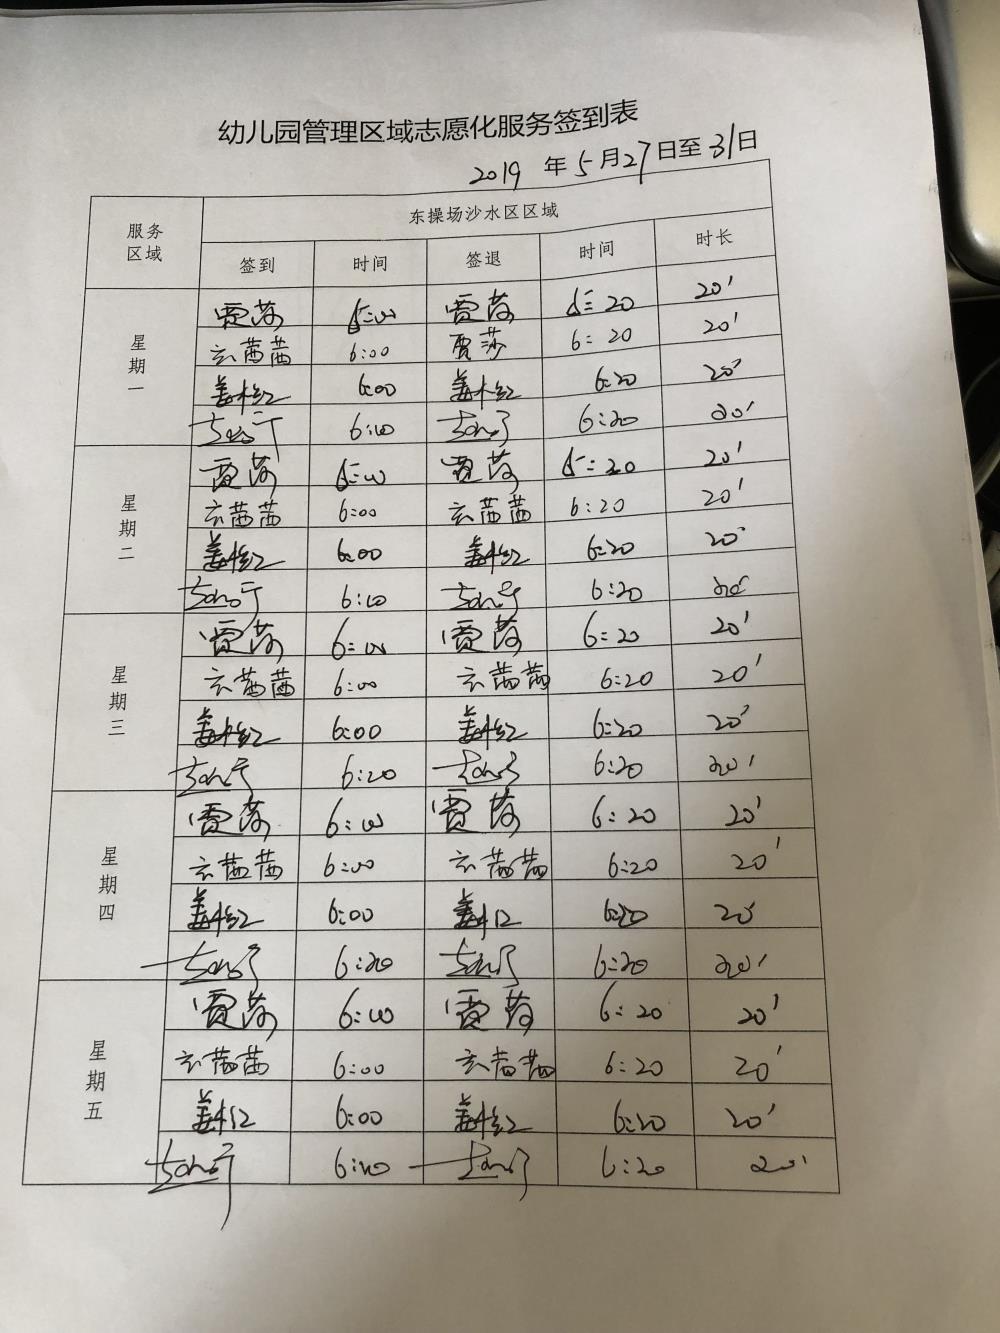 幼儿园管理区域志愿化服务签到表
2019 年 5 月 27 日至 31 日
服务区域 东操场沙水区区域
签到 时间 签退 时间 时长
星期一
贾莎 6:00 贾莎 6:20 20'
云茜茜 6:00 贾莎 6:20 20'
姜桂红 6:00 姜桂红 6:20 20'
6:00 6:20 20'
星期二
贾莎 6:00 贾莎 6:20 20'
云茜茜 6:00 云茜茜 6:20 20'
姜桂红 6:00 姜桂红 6:20 20'
6:00 6:20 20'
星期三
贾莎 6:00 贾莎 6:20 20'
云茜茜 6:00 云茜茜 6:20 20'
姜桂红 6:00 姜桂红 6:20 20'
6:20 6:20 20'
星期四
贾莎 6:00 贾莎 6:20 20'
云茜茜 6:00 云茜茜 6:20 20'
姜桂红 6:00 姜桂红 6:20 20'
6:20 6:20 20'
星期五
贾莎 6:00 贾莎 6:20 20'
云茜茜 6:00 云茜茜 6:20 20'
姜桂红 6:00 姜桂红 6:20 20'
6:20 20'